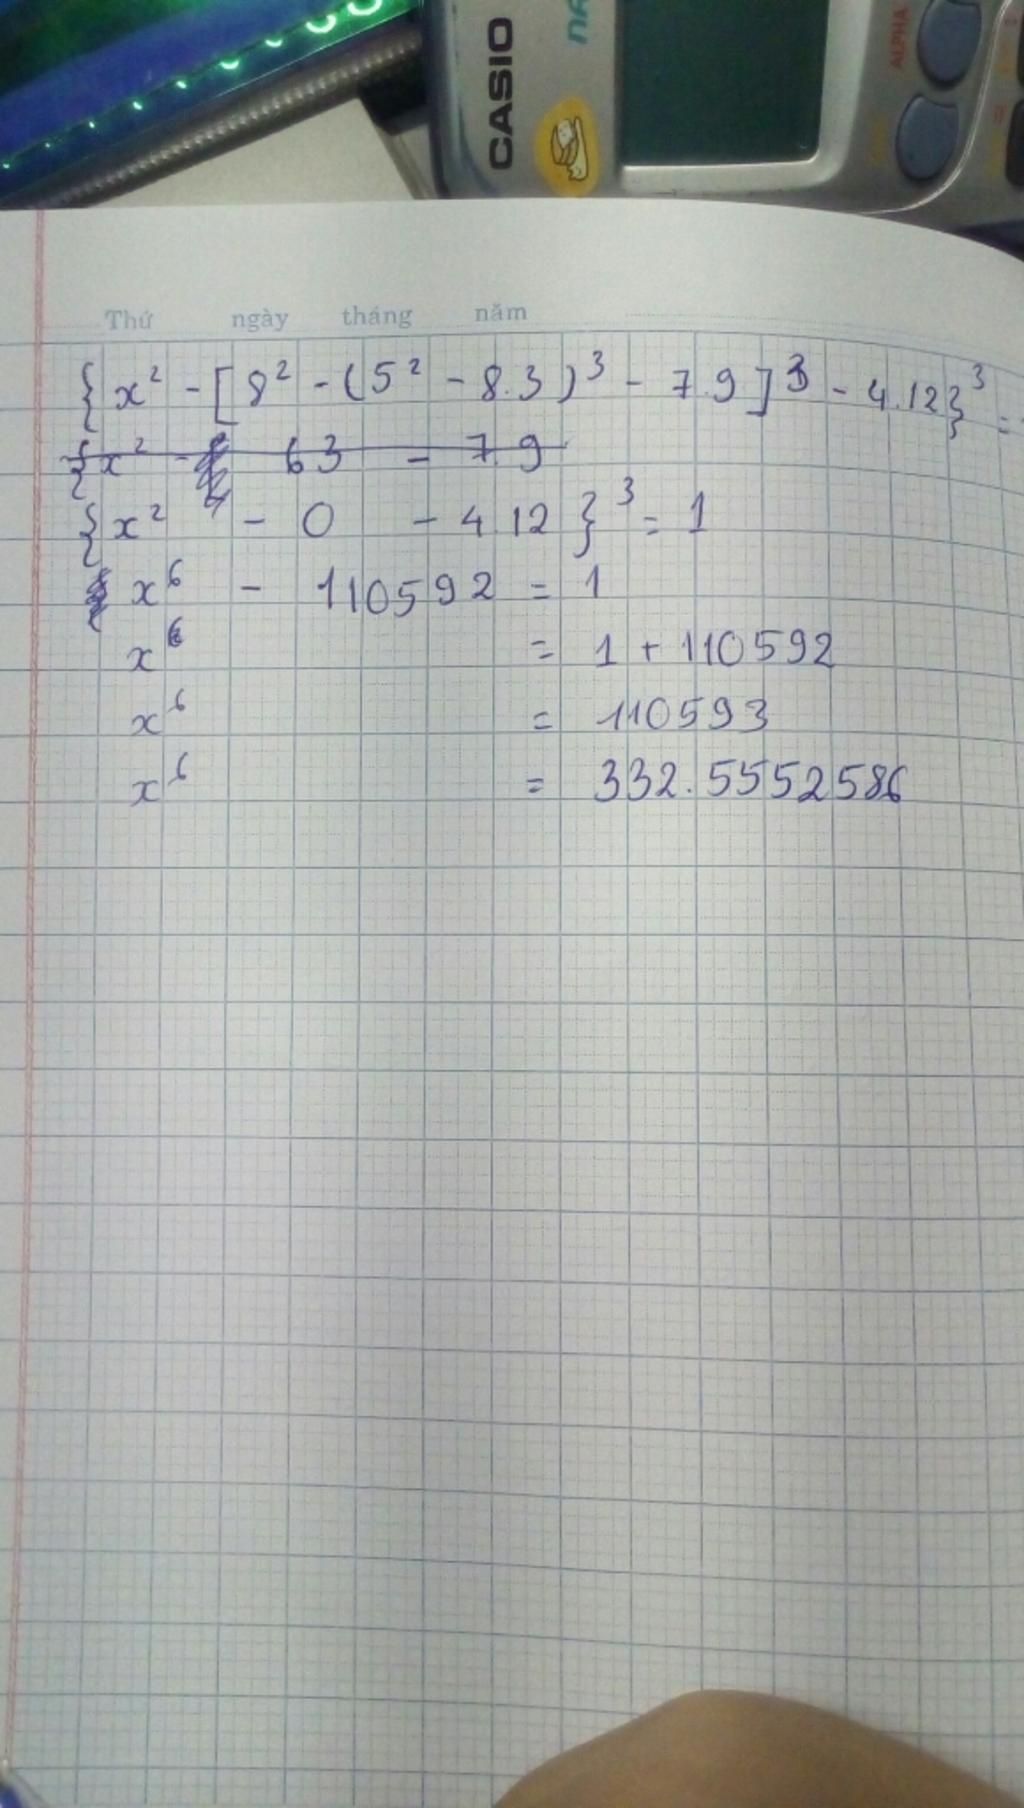 CASIO
ALPHA
Thứ ngày tháng năm
{x² - [8² - (5² - 8.3)³ - 7.9]³ - 4.12}³ =
{x² - 63 - 7.9
{x² - 0 - 4.12}³ = 1
x⁶ - 110592 = 1
x⁶ = 1 + 110592
x⁶ = 110593
x⁶ = 332.5552586